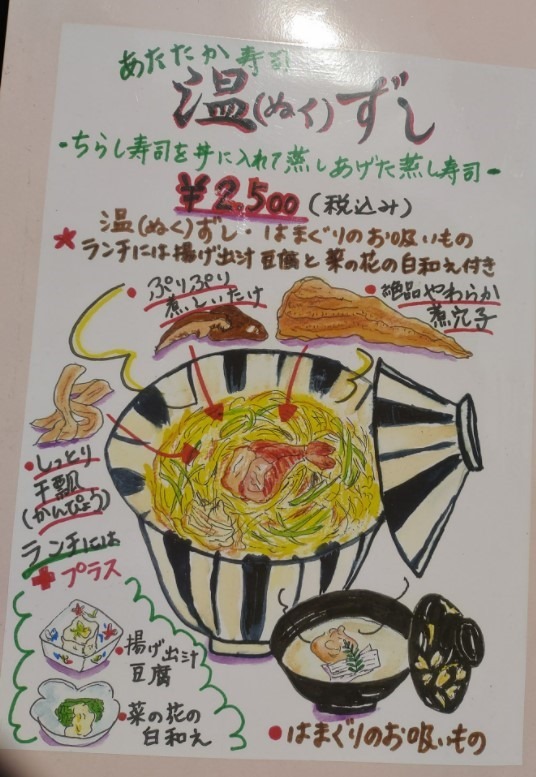 あたたか寿司
温(ぬく)ずし
・ちらし寿司を丼に入れて蒸しあげた蒸し寿司・
¥2,500(税込み)
温(ぬく)ずし はまぐりのお吸いもの
★ランチには揚げ出汁豆腐と菜の花の白和え付き
・ぷりぷり
煮しいたけ
・絶品やわらか
煮穴子
・しっとり
干瓢
(かんぴょう)
ランチには
+プラス
・揚げ出汁
豆腐
・菜の花の
白和え
・はまぐりのお吸いもの